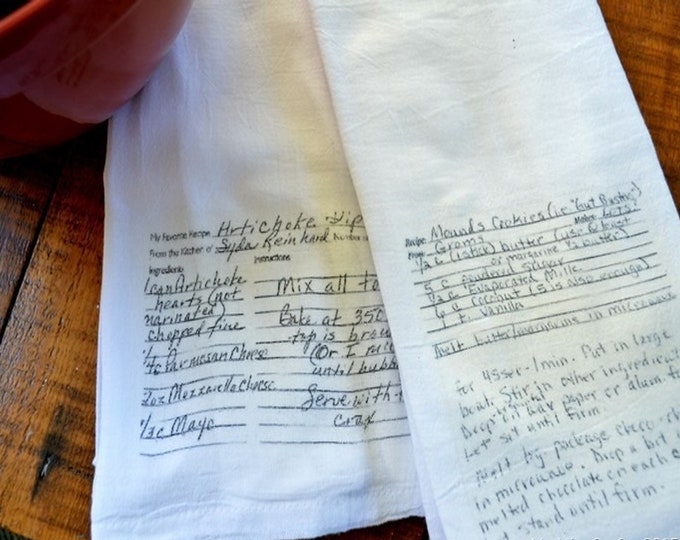 My Favorite Recipe Artichoke Dip
From the Kitchen of Syda Reinhard Number
Ingredients
Instructions
1 can Artichoke
hearts (not
marinated)
chopped fine
Parmesan Cheese
2oz Mozzarella Cheese
1/3 c Mayo
Mix all to
Bake at 350
top is bro
(Or I mic
until bubb
Serve with
crax
Recipe: Mounds Cookies (ie "Gut Buste
From: Groms Makes: lots!
1/2 c (1 stick) butter (use
or margarine & butter)
5 c powdered sugar
1/2 c Evaporated Milk
6 c Coconut (5 is also enough)
1 t. Vanilla
Melt butter/margarine in microwave
for 45sec-1min. Put in large
bowl. Stir in other ingredients
Drop by wax paper or alum. fo
Let sit until firm.
Melt package choc. ch
in microwave. Drop a bit o
melted chocolate on each
stand until firm.